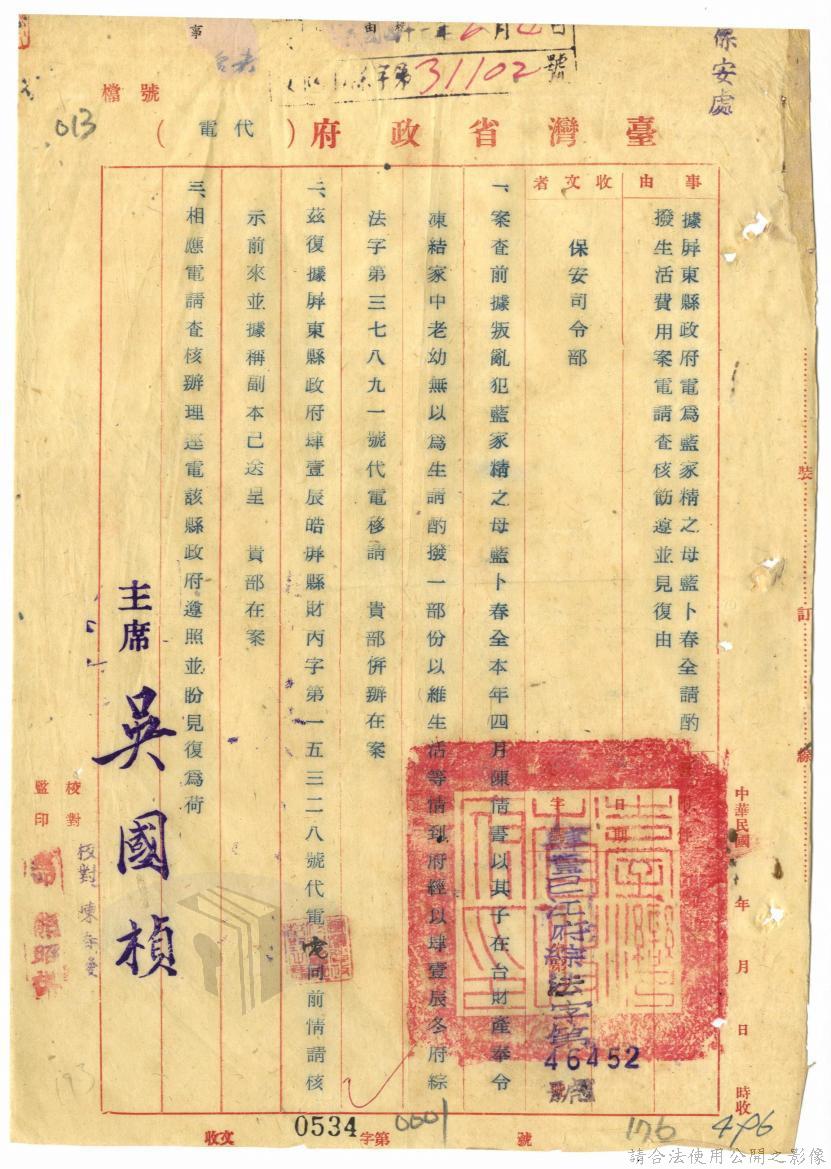 保安處
年 月 日
字第31102號
檔號
013
臺灣省政府(代電)
事由
據屏東縣政府電為藍家精之母藍卜春全請酌
撥生活費用案電請查核飭遵並見復由
收文者
保安司令部
一、案查前據叛亂犯藍家精之母藍卜春全本年四月陳情書以其子在台財產奉令
凍結家中老幼無以為生請酌撥一部份以維生活等情到府經以肆壹辰冬府綜
法字第三七八九一號代電移請 貴部併辦在案
二、茲復據屏東縣政府肆壹辰皓屏縣財丙字第一五三二八號代電 同前情請核
示前來並據稱副本已送呈 貴部在案
三、相應電請查核辦理逕電該縣政府遵照並盼見復為荷
主席 吳國楨
校對
監印
校對 陳
日期
肆壹巳江府綜法字第
46452
號
中華民國 年 月 日 時收
裝 訂 線
收文 0534 字第 0001 號
176
496
193
請合法使用公開之影像